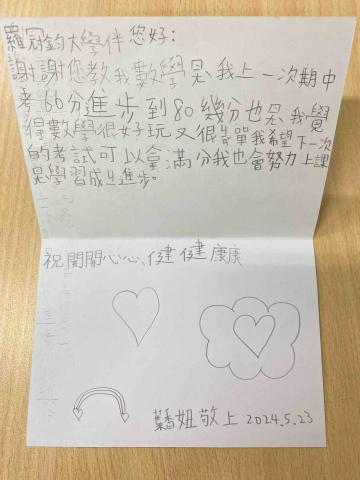 羅冠鈞大學伴您好:
謝謝您教我數學是我上一次期中
考66分進步到80幾份也是我覺
得數學很好玩又很簡單我希望下一次
的考試可以拿滿分我也會努力上課
是學習成績進步。
祝開開心心、健健康康
妞敬上 2024.5.23